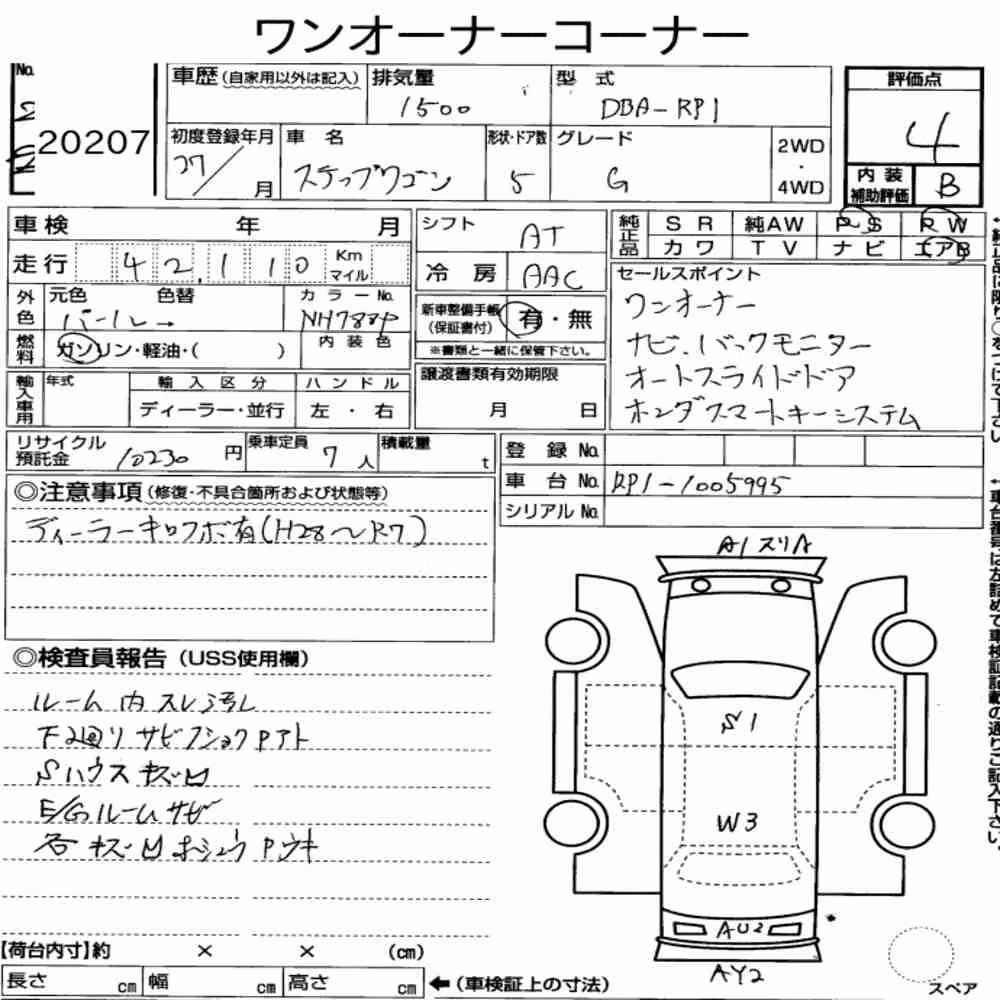 ワンオーナーコーナー
No. 20207
車歴 (自家用以外は記入)
排気量 1500
型式 DBA-RP1
評価点 4
初度登録年月 27/ 月
車名 ステップワゴン
形状・ドア数 5
グレード G
2WD・4WD
内装補助評価 B
車検 年 月
シフト AT
純正品 SR 純AW PS RW
カワ TV ナビ エアB
走行 42,110 Km マイル
冷房 AAC
セールスポイント
ワンオーナー
ナビ、バックモニター
オートスライドドア
ホンダスマートキーシステム
外色 元色 色替 パール→
カラーNo. NH788P
新車整備手帳(保証書付) 有・無
※書類と一緒に保管下さい。
燃料 ガソリン・軽油・( )
内装色
輸入車用 年式 輸入区分 ハンドル
ディーラー・並行 左・右
譲渡書類有効期限
月 日
リサイクル預託金 10230 円
乗車定員 7 人
積載量 t
登録 No.
車台 No. RP1-1005995
シリアル No.
◎注意事項 (修復・不具合箇所および状態等)
ディーラーキロクボ有(H28〜R7)
◎検査員報告 (USS使用欄)
ルーム内スレ汚レ
下廻りサビフショクPアト
Sハウスキズ凹
E/Gルームサビ
各キズ凹ホシュウPウキ
A1スリA
S1
W3
AU2
AY2
スペア
【荷台内寸】約 × × (cm)
長さ cm 幅 cm 高さ cm
←(車検証上の寸法)
↑純正品に限り○をつけて下さい
↑車台番号は左詰めで車検証記載の通りご記入下さい。